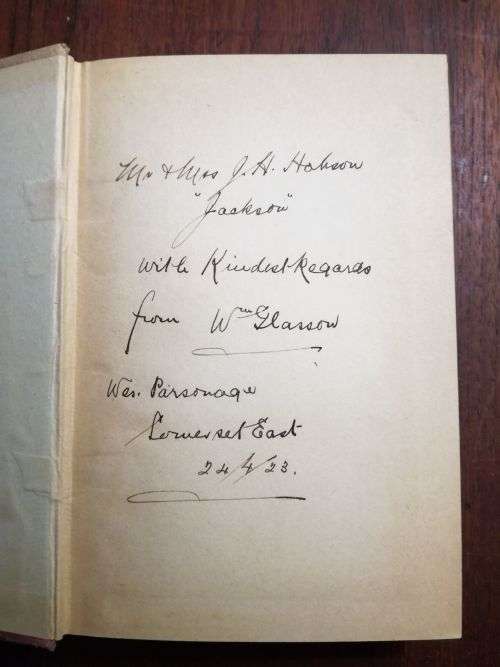 Mr & Mrs J. H. Hobson
"Jackson"
with Kindest Regards
from Wm Glasson
Wes. Parsonage
Somerset East
24/4/23.